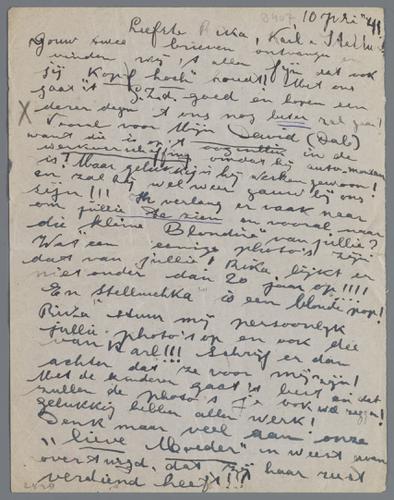 10 Juni '41
Liefste Riska, Karl & Stella
Jouw twee brieven ontvangen en
vinden wij 't allen fijn dat ook
jij "Kopf hoch" houdt! Met ons
gaat 't G.z.d. goed en boven een
't ons nog beter zal gaan!
Vooral voor Mijn David (Dab)
want die is in de
werkverschaffing omdat hij auto-monteur
is! Maar gelukkig is hij werken gewoon!
en zal hij wel weer gauw bij ons
zijn!!! Ik verlang er vaak naar
om jullie te zien en vooral naar
die "kleine Blondine" van jullie?
Wat een eenige photo's zijn
dat van jullie! Riska, lijkt er
niet ouder dan 20 jaar op!!!!
En Stelluschka is een blonde pop!
Riska, stuur mij persoonlijk
jullie photo's op en ook die
van Karl!!! Schrijf er dan
achter dat ze voor mij zijn!
Met de kinderen gaat 't best en dat
zullen de photo's je ook wel zeggen!
gelukkig hebben allen werk!
Denk maar veel aan onze
"lieve Moeder" en weest ervan
overtuigd, dat zij haar rust
verdiend heeft!!!